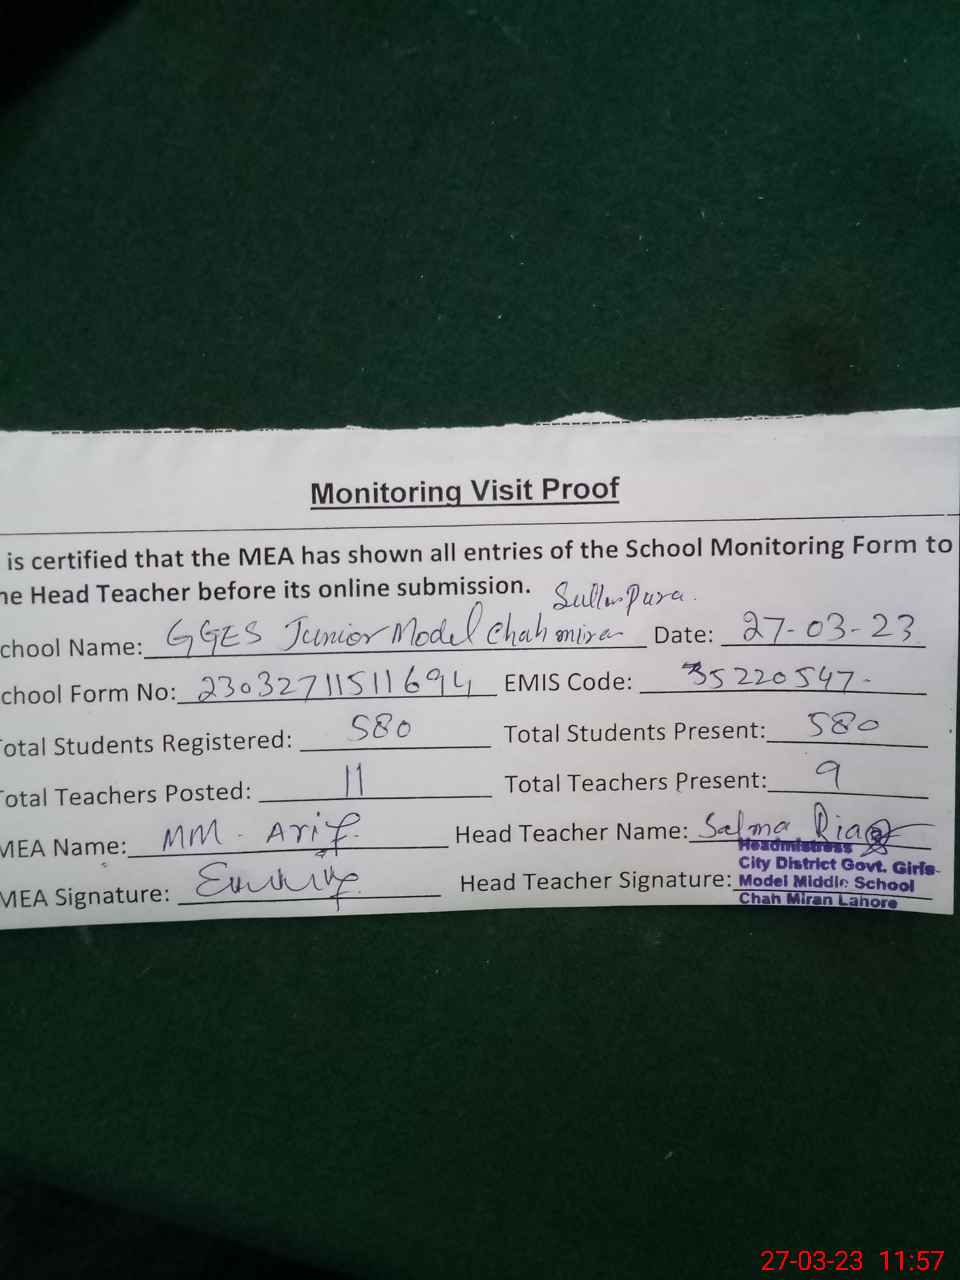 Monitoring Visit Proof
is certified that the MEA has shown all entries of the School Monitoring Form to
he Head Teacher before its online submission.
chool Name: GGES Junior Model Chah mira Date: 27-03-23
chool Form No: 23032711511694 EMIS Code: 35220547-
otal Students Registered: 580 Total Students Present: 580
otal Teachers Posted: 11 Total Teachers Present: 9
MEA Name: MM. Arif Head Teacher Name: Salma Riaz
MEA Signature: Head Teacher Signature:
Headmistress
City District Govt. Girls
Model Middle School
Chah Miran Lahore
27-03-23 11:57